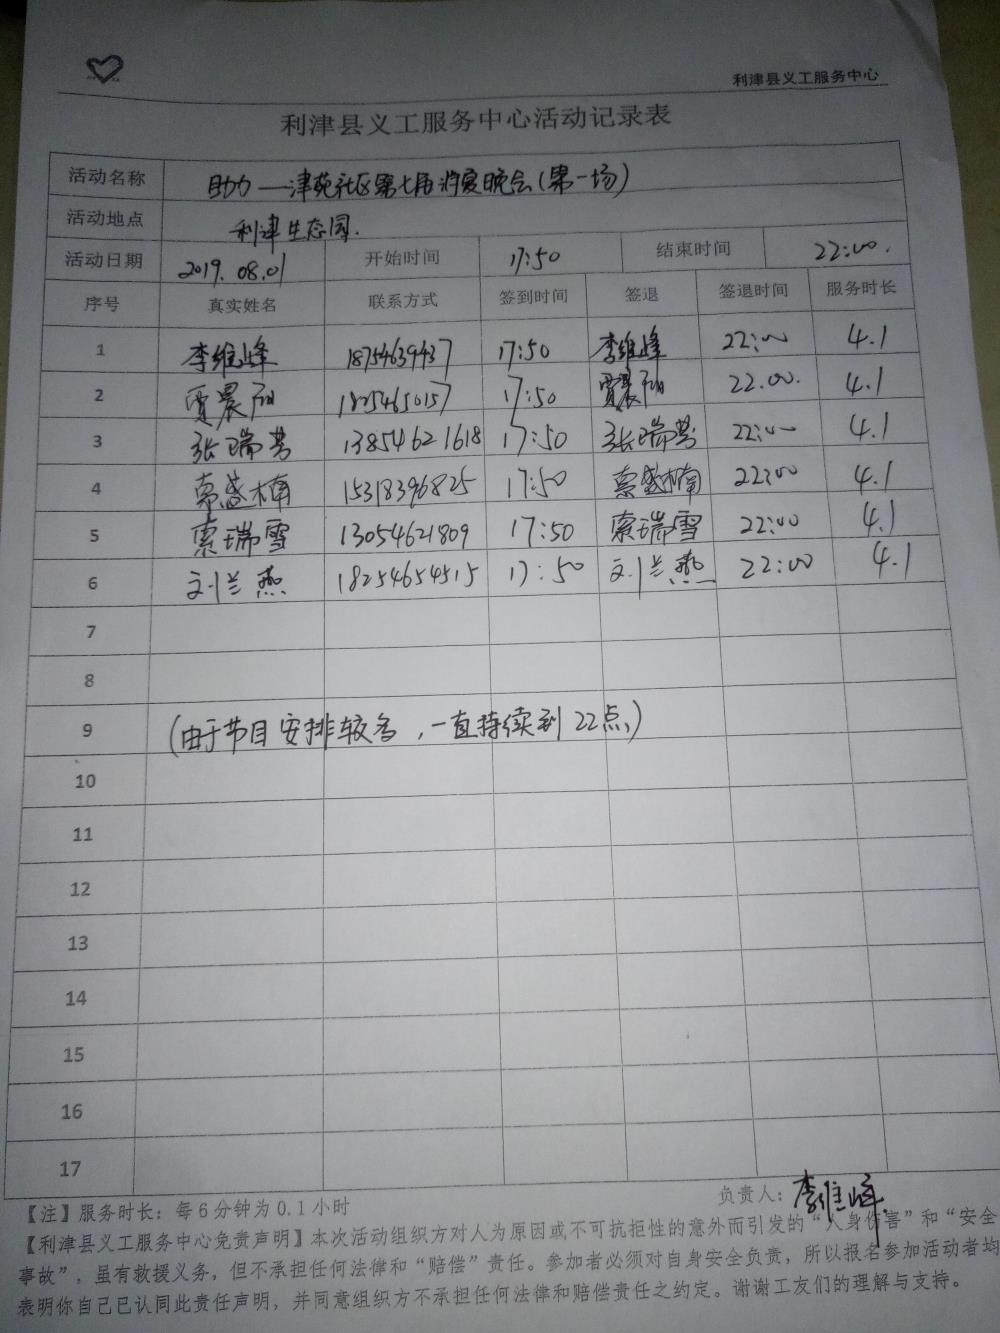 利津县义工服务中心
利津县义工服务中心活动记录表
活动名称 助力——津苑社区第七届消夏晚会(第一场)
活动地点 利津生态园.
活动日期 2019.08.01 开始时间 17:50 结束时间 22:00.
序号 真实姓名 联系方式 签到时间 签退 签退时间 服务时长
1 李维峰 18754639437 17:50 李维峰 22:00 4.1
2 贾晨阳 18254650157 17:50 贾晨阳 22.00. 4.1
3 张瑞芳 13854621618 17:50 张瑞芳 22:00 4.1
4 索盛楠 15318396825 17:50 索盛楠 22:00 4.1
5 索瑞雪 13054621809 17:50 索瑞雪 22:00 4.1
6 刘兰燕 18254654515 17:50 刘兰燕 22:00 4.1
7
8
9 (由于节目安排较多,一直持续到22点,)
10
11
12
13
14
15
16
17
【注】服务时长：每6分钟为0.1小时 负责人：李维峰
【利津县义工服务中心免责声明】本次活动组织方对人为原因或不可抗拒性的意外而引发的“人身伤害”和“安全
事故”，虽有救援义务，但不承担任何法律和“赔偿”责任。参加者必须对自身安全负责，所以报名参加活动者均
表明你自己已认同此责任声明，并同意组织方不承担任何法律和赔偿责任之约定。谢谢工友们的理解与支持。